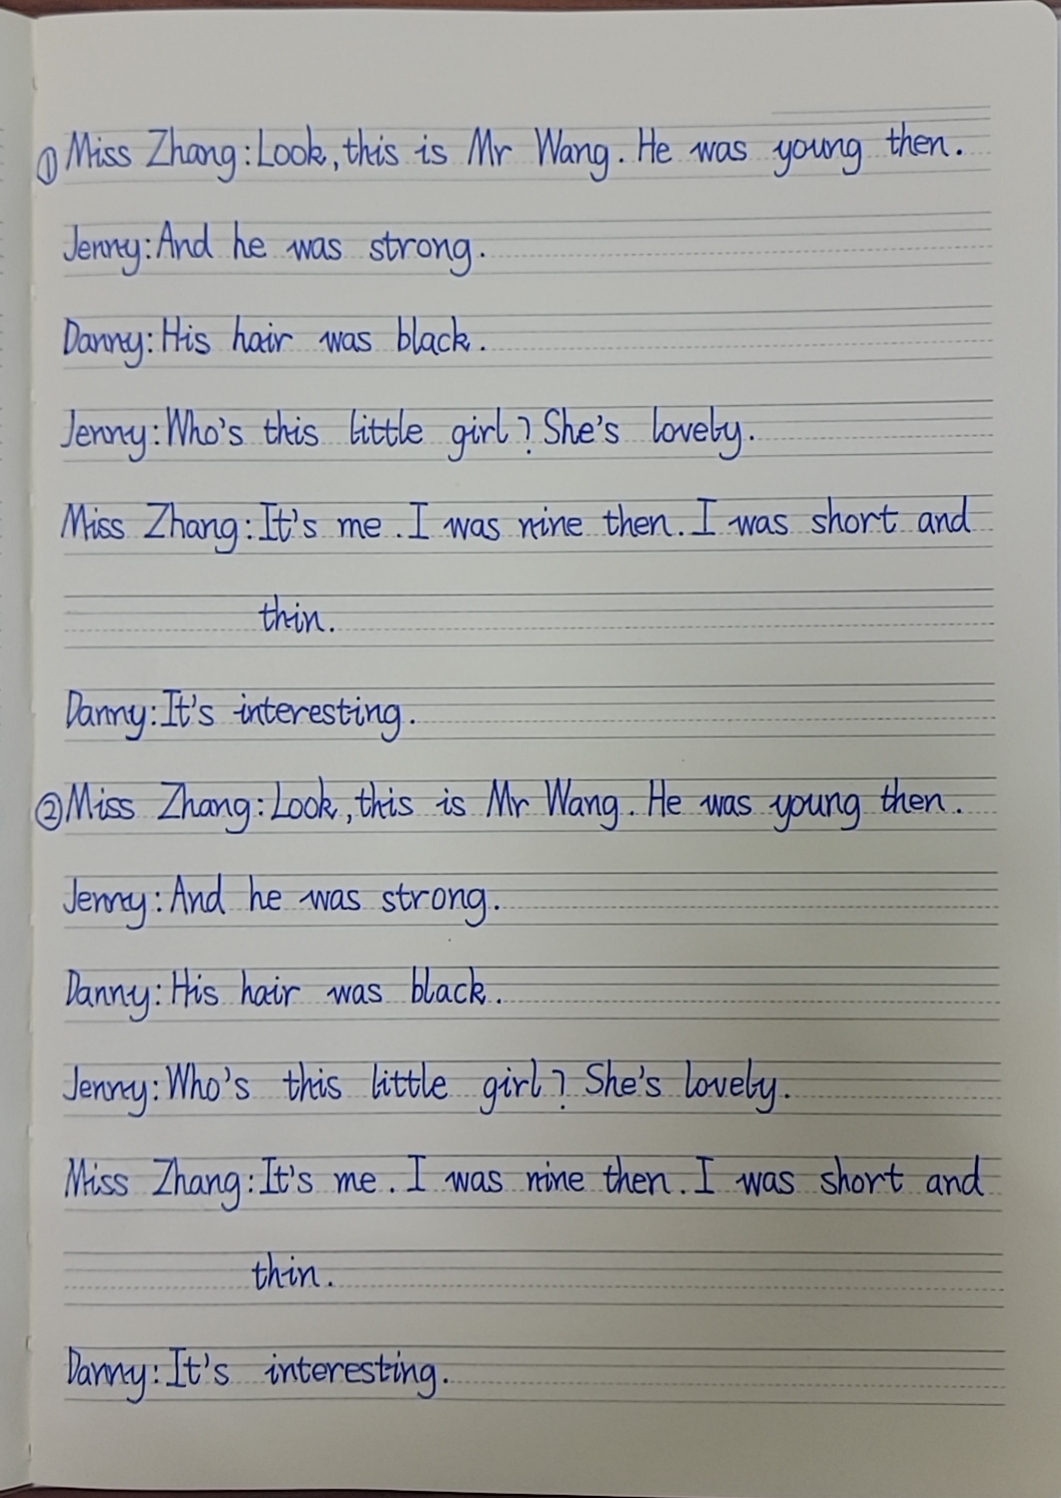 ①Miss Zhang:Look,this is Mr Wang. He was young then.
Jenny:And he was strong.
Danny:His hair was black.
Jenny:Who's this little girl? She's lovely.
Miss Zhang:It's me. I was nine then. I was short and
thin.
Danny:It's interesting.
②Miss Zhang:Look,this is Mr Wang. He was young then.
Jenny:And he was strong.
Danny:His hair was black.
Jenny:Who's this little girl? She's lovely.
Miss Zhang:It's me. I was nine then. I was short and
thin.
Danny:It's interesting.